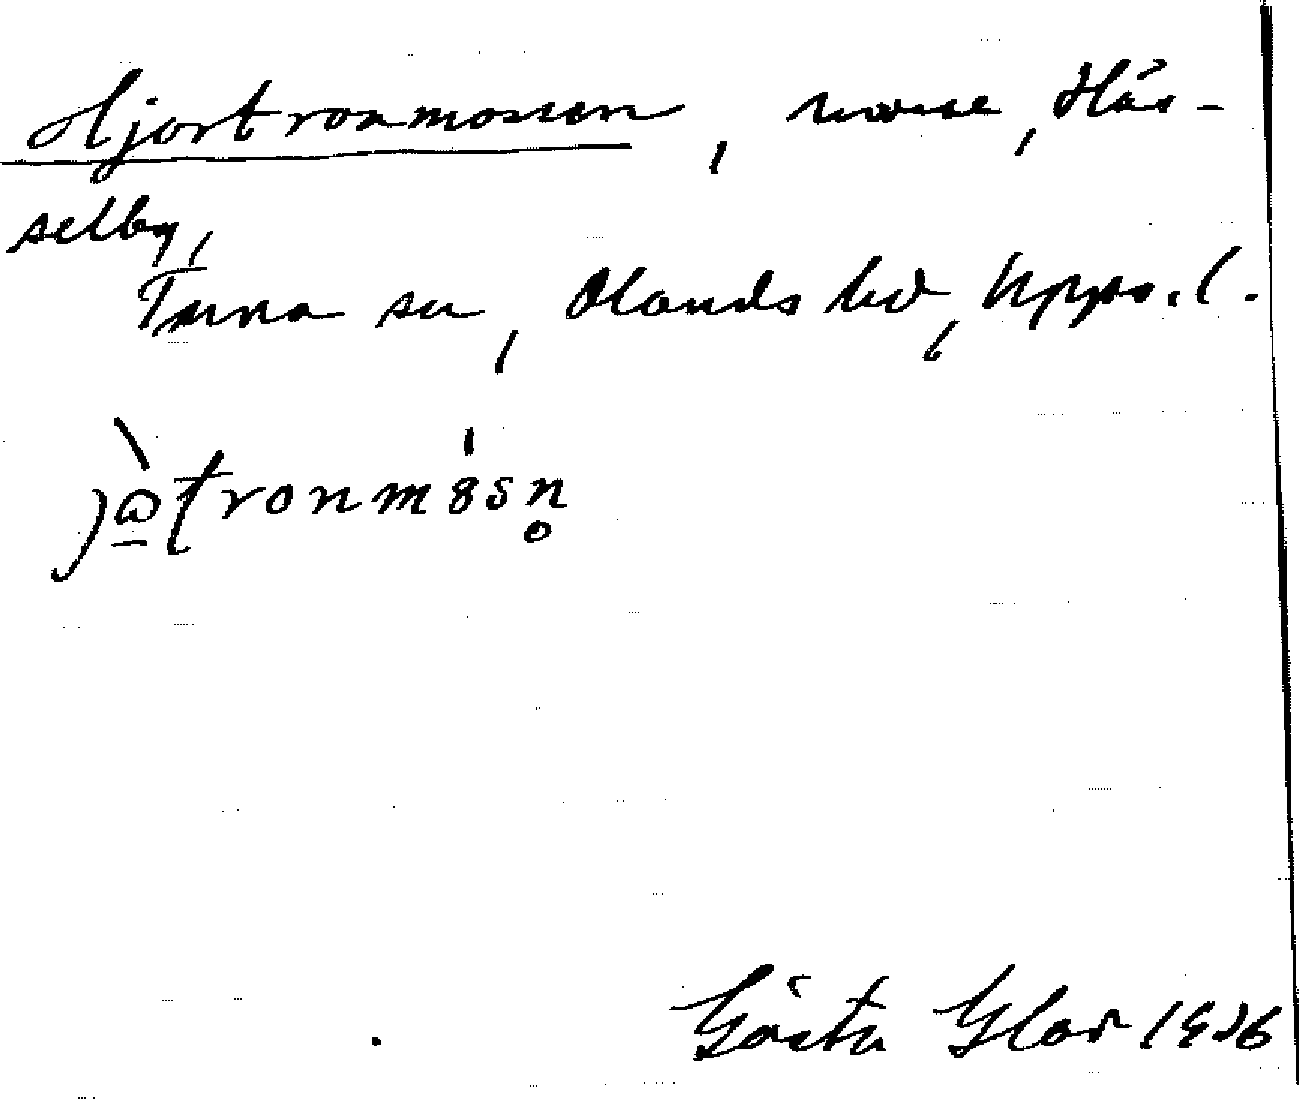 Hjortronmossen, mosse, Häs-
selby,
Tuna sn, Olands hd, Upps. l.
jɷ̀tronmȣ́sn̥
Gösta Glas 1926